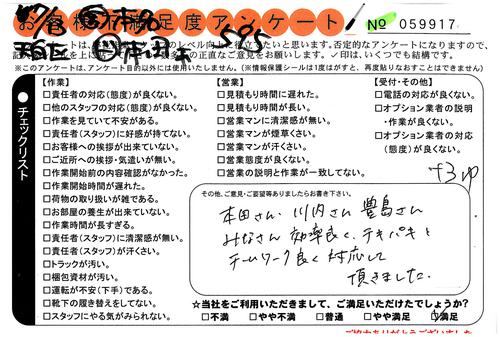 お客様不満足度アンケート
№ 059917
585
アンケートは、
のレベル向上に役立てたいと思います。否定的なアンケートになりますので、
の正直なご意見をお願いします。✓印は、いくつでも結構です。
※このアンケートは、アンケート目的以外には使用いたしません。(※情報保護シールは1度がすと、再度貼りなおすことはできません)
●チェックリスト
【作業】
□責任者の対応(態度)が良くない。
□他のスタッフの対応(態度)が良くない。
□作業を見ていて不安がある。
□責任者(スタッフ)に好感が持てない。
□お客様への挨拶が出来ていない。
□ご近所への挨拶・気遣いが無い。
□作業開始前の内容確認がなかった。
□作業開始時間が遅れた。
□荷物の取り扱いが雑である。
□お部屋の養生が出来ていない。
□作業時間が長すぎる。
□責任者(スタッフ)に清潔感が無い。
□責任者(スタッフ)が汗くさい。
□トラックが汚い。
□梱包資材が汚い。
□運転が不安(下手)である。
□靴下の履き替えをしてない。
□スタッフにやる気がみられない。
【営業】
□見積もり時間に遅れた。
□見積もり時間が長い。
□営業マンに清潔感が無い。
□営業マンが煙草くさい。
□営業マンが汗くさい。
□営業態度が良くない。
□営業の説明と作業が一致してない。
【受付・その他】
□電話の対応が良くない。
□オプション業者の説明
・作業が良くない。
□オプション業者の対応
(態度)が良くない。
その他、ご意見・ご要望等ありましたらお書き下さい。
本田さん、川内さん 豊島さん
みなさん 効率良く、テキパキと
チームワーク良く 対応して
頂きました。
☆当社をご利用いただきまして、ご満足いただけたでしょうか?
□不満 □やや不満 □普通 □やや満足 □満足
ご協力ありがとうございました